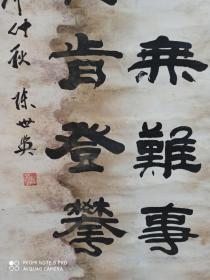 無難事
肯登攀
仲秋 陳世英
REDMI NOTE 8 PRO
AI QUAD CAMERA